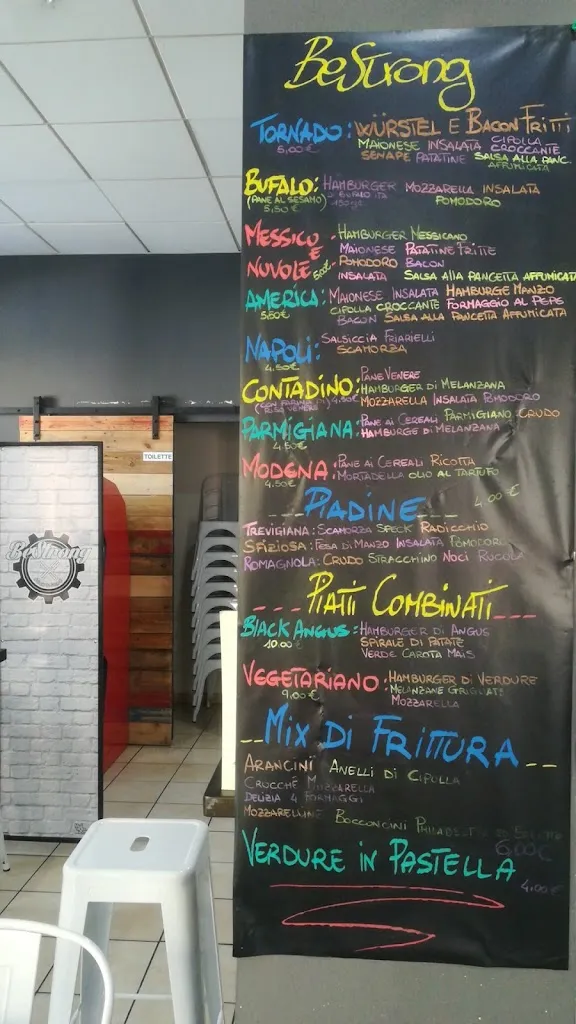 BeStrong
TORNADO: WÜRSTEL E BACON FRITTI
5,00€ MAIONESE INSALATA CIPOLLA CROCCANTE
SENAPE PATATINE SALSA ALLA PANC. AFFUMICATA
BUFALO: HAMBURGER MOZZARELLA INSALATA
(PANE AL SESAMO) POMODORO
5,50€
MESSICO E NUVOLE 5,00€
HAMBURGER MESSICANO
MAIONESE PATATINE FRITTE
POMODORO BACON
INSALATA SALSA ALLA PANCETTA AFFUMICATA
AMERICA: MAIONESE INSALATA HAMBURGE MANZO
5,50€ CIPOLLA CROCCANTE FORMAGGIO AL PEPE
BACON SALSA ALLA PANCETTA AFFUMICATA
NAPOLI: SALSICCIA FRIARIELLI
4.50€ SCAMORZA
CONTADINO: PANE VENERE
HAMBURGER DI MELANZANA
4,50€ MOZZARELLA INSALATA POMODORO
PARMIGIANA: PANE AI CEREALI PARMIGIANO CRUDO
4.50€ HAMBURGE DI MELANZANA
MODENA: PANE AI CEREALI RICOTTA
4.50€ MORTADELLA OLIO AL TARTUFO
PIADINE 4,00€
TREVIGIANA: SCAMORZA SPECK RADICCHIO
SFIZIOSA: FESA DI MANZO INSALATA POMODORO
ROMAGNOLA: CRUDO STRACCHINO NOCI RUCOLA
PIATTI COMBINATI
BLACK ANGUS: HAMBURGER DI ANGUS
10.00€ SPIRALE DI PATATE
VERDE CAROTA MAIS
VEGETARIANO: HAMBURGER DI VERDURE
9,00€ MELANZANE GRIGLIATE
MOZZARELLA
MIX DI FRITTURA
ARANCINI ANELLI DI CIPOLLA
CROCCHÉ MOZZARELLA
DELIZIA 4 FORMAGGI
MOZZARELLINE BOCCONCINI PHILADELPHIA
6,00€
VERDURE IN PASTELLA
4,00€
TOILETTE
BeStrong